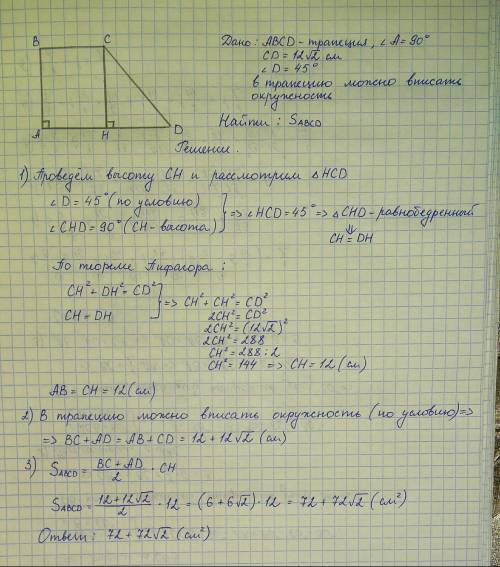 B
C
A
H
D
Дано: ABCD - трапеция, ∠A = 90°
CD = 12√2 см
∠D = 45°
в трапецию можно вписать
окружность
Найти: S_ABCD
Решение.
1) Проведём высоту CH и рассмотрим △HCD
∠D = 45° (по условию)
∠CHD = 90° (CH - высота) } => ∠HCD = 45° => △CHD - равнобедренный
⇓
CH = DH
По теореме Пифагора:
CH² + DH² = CD²
CH = DH } => CH² + CH² = CD²
2CH² = CD²
2CH² = (12√2)²
2CH² = 288
CH² = 288 : 2
CH² = 144 => CH = 12 (см)
AB = CH = 12 (см)
2) В трапецию можно вписать окружность (по условию) =>
=> BC + AD = AB + CD = 12 + 12√2 (см)
3) S_ABCD = (BC + AD)/2 · CH
S_ABCD = (12 + 12√2)/2 · 12 = (6 + 6√2) · 12 = 72 + 72√2 (см²)
Ответ: 72 + 72√2 (см²)